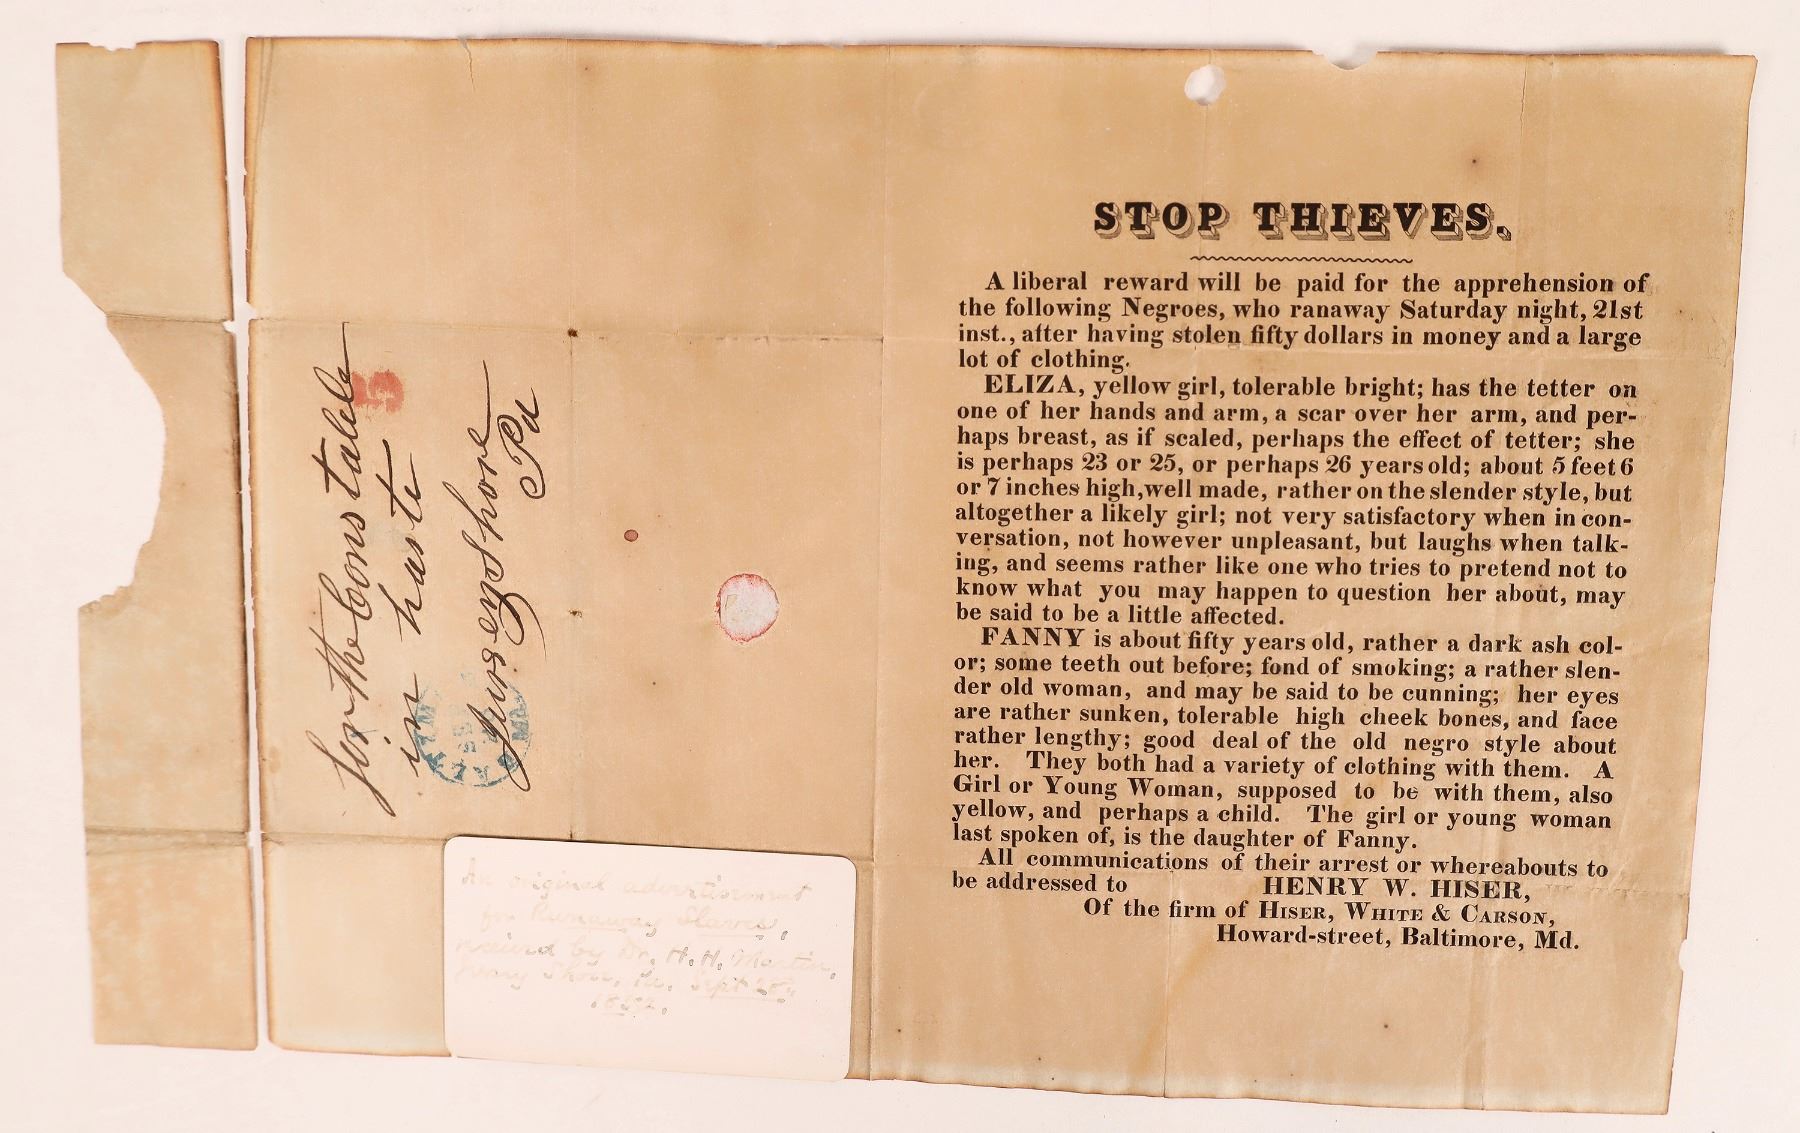 STOP THIEVES.
A liberal reward will be paid for the apprehension of
the following Negroes, who ranaway Saturday night, 21st
inst., after having stolen fifty dollars in money and a large
lot of clothing.
ELIZA, yellow girl, tolerable bright; has the tetter on
one of her hands and arm, a scar over her arm, and per-
haps breast, as if scaled, perhaps the effect of tetter; she
is perhaps 23 or 25, or perhaps 26 years old; about 5 feet 6
or 7 inches high, well made, rather on the slender style, but
altogether a likely girl; not very satisfactory when in con-
versation, not however unpleasant, but laughs when talk-
ing, and seems rather like one who tries to pretend not to
know what you may happen to question her about, may
be said to be a little affected.
FANNY is about fifty years old, rather a dark ash col-
or; some teeth out before; fond of smoking; a rather slen-
der old woman, and may be said to be cunning; her eyes
are rather sunken, tolerable high cheek bones, and face
rather lengthy; good deal of the old negro style about
her. They both had a variety of clothing with them. A
Girl or Young Woman, supposed to be with them, also
yellow, and perhaps a child. The girl or young woman
last spoken of, is the daughter of Fanny.
All communications of their arrest or whereabouts to
be addressed to HENRY W. HISER,
Of the firm of HISER, WHITE & CARSON,
Howard-street, Baltimore, Md.
For the Constable
in haste
Jersey Shore
Pa
5
An original advertisement
for Runaway Slaves,
received by Dr. H. H. Martin,
Jersey Shore, Pa. Sept